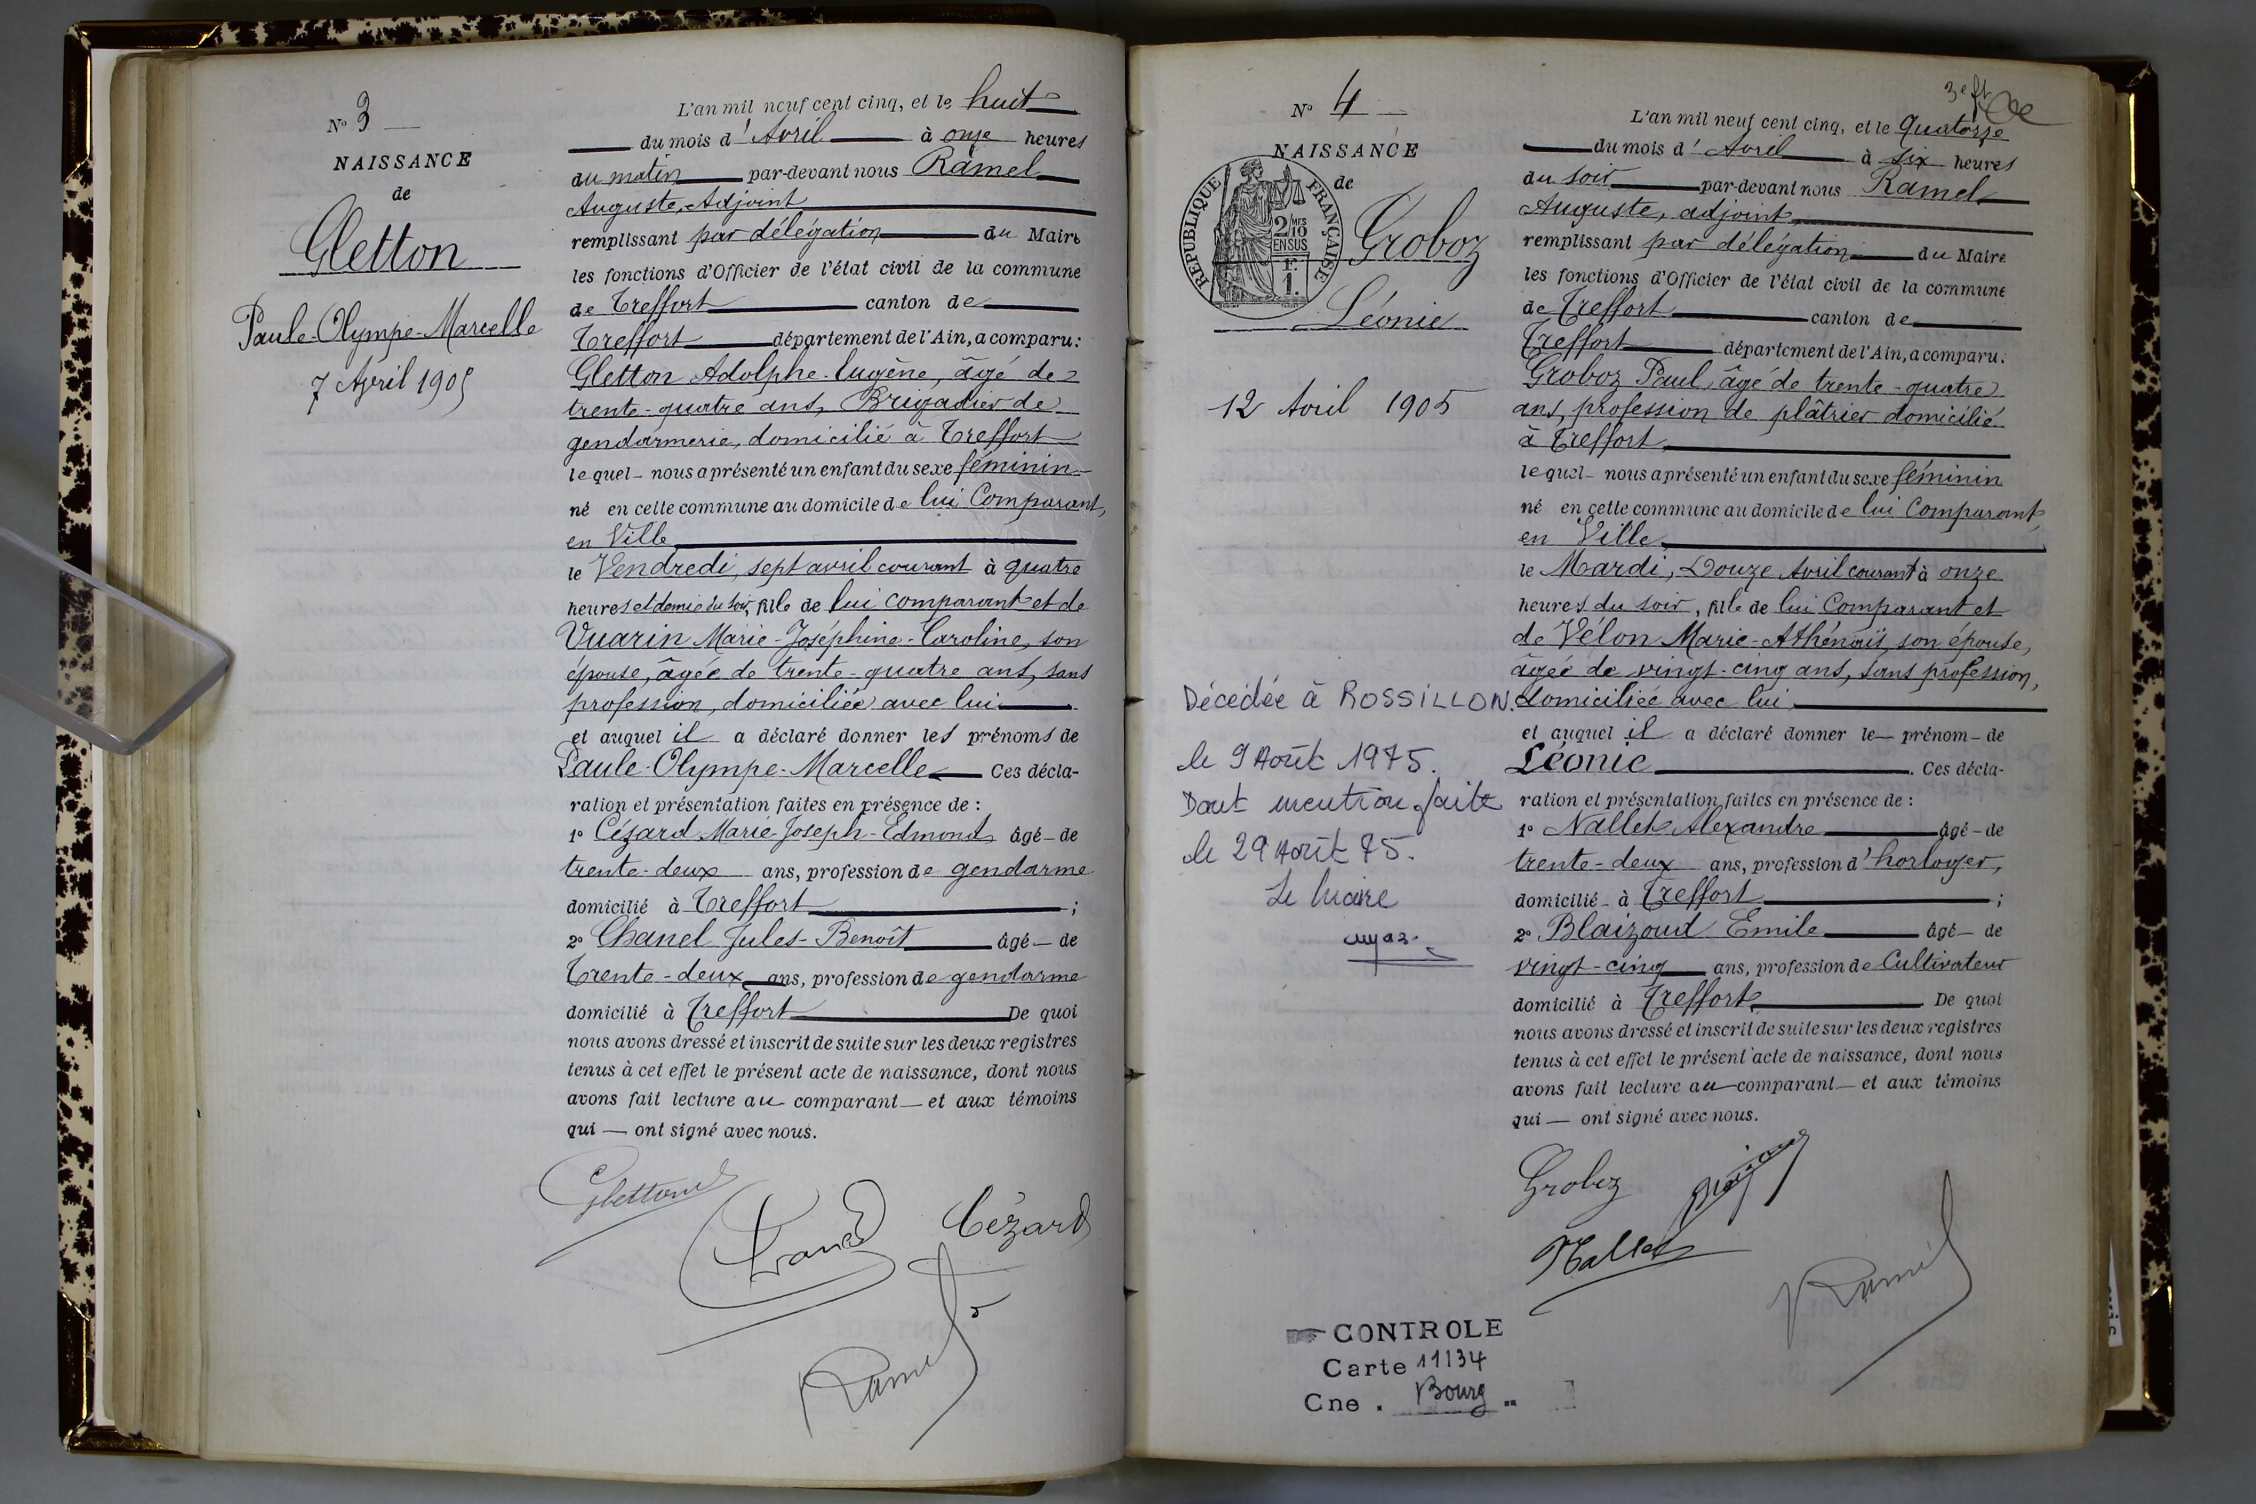 N° 3
NAISSANCE
de
Gletton
Paule-Olympe-Marcelle
7 Avril 1905
L'an mil neuf cent cinq, et le huit
du mois d'Avril à onze heures
du matin par-devant nous Ramel
Auguste, Adjoint
remplissant par délégation du Maire
les fonctions d'Officier de l'état civil de la commune
de Treffort canton de
Treffort département de l'Ain, a comparu:
Gletton Adolphe-Eugène, âgé de
trente-quatre ans, Brigadier de
gendarmerie, domicilié à Treffort
lequel nous a présenté un enfant du sexe féminin
né en cette commune au domicile de lui Comparant,
en Ville
le Vendredi, sept avril courant à quatre
heures et demie du soir, fille de lui comparant et de
Vuarin Marie-Joséphine-Caroline, son
épouse, âgée de trente-quatre ans, sans
profession, domiciliée avec lui
et auquel il a déclaré donner les prénoms de
Paule-Olympe-Marcelle Ces décla-
ration et présentation faites en présence de :
1° Cézard Marie-Joseph-Edmond âgé de
trente-deux ans, profession de gendarme
domicilié à Treffort ;
2° Chanel Jules-Benoît âgé de
Trente-deux ans, profession de gendarme
domicilié à Treffort De quoi
nous avons dressé et inscrit de suite sur les deux registres
tenus à cet effet le présent acte de naissance, dont nous
avons fait lecture au comparant et aux témoins
qui ont signé avec nous.
Gletton
Cézard
Ramel
N° 4
NAISSANCE
de
RÉPUBLIQUE FRANÇAISE
2/10 MES
EN SUS
F.
1.
Groboz
Léonie
12 Avril 1905
Décédée à ROSSILLON.
le 9 Août 1975.
Dont mention faite
le 29 Août 75.
Le Maire
L'an mil neuf cent cinq, et le Quatorze
du mois d'Avril à six heures
du soir par-devant nous Ramel
Auguste, adjoint
remplissant par délégation du Maire
les fonctions d'Officier de l'état civil de la commune
de Treffort canton de
Treffort département de l'Ain, a comparu:
Groboz Paul, âgé de trente-quatre
ans, profession de plâtrier domicilié
à Treffort
lequel nous a présenté un enfant du sexe féminin
né en cette commune au domicile de lui Comparant,
en Ville,
le Mardi, Douze Avril courant à onze
heures du soir, fille de lui Comparant et
de Vélon Marie-Athénaïs, son épouse,
âgée de vingt-cinq ans, sans profession,
domiciliée avec lui,
et auquel il a déclaré donner le prénom de
Léonie . Ces décla-
ration et présentation faites en présence de :
1° Nallet Alexandre âgé de
trente-deux ans, profession d'horloger,
domicilié à Treffort ;
2° Blaizoud Emile âgé de
vingt-cinq ans, profession de Cultivateur
domicilié à Treffort De quoi
nous avons dressé et inscrit de suite sur les deux registres
tenus à cet effet le présent acte de naissance, dont nous
avons fait lecture au comparant et aux témoins
qui ont signé avec nous.
Groboz
Nallet
Ramel
CONTROLE
Carte 11134
Cne . Bourg